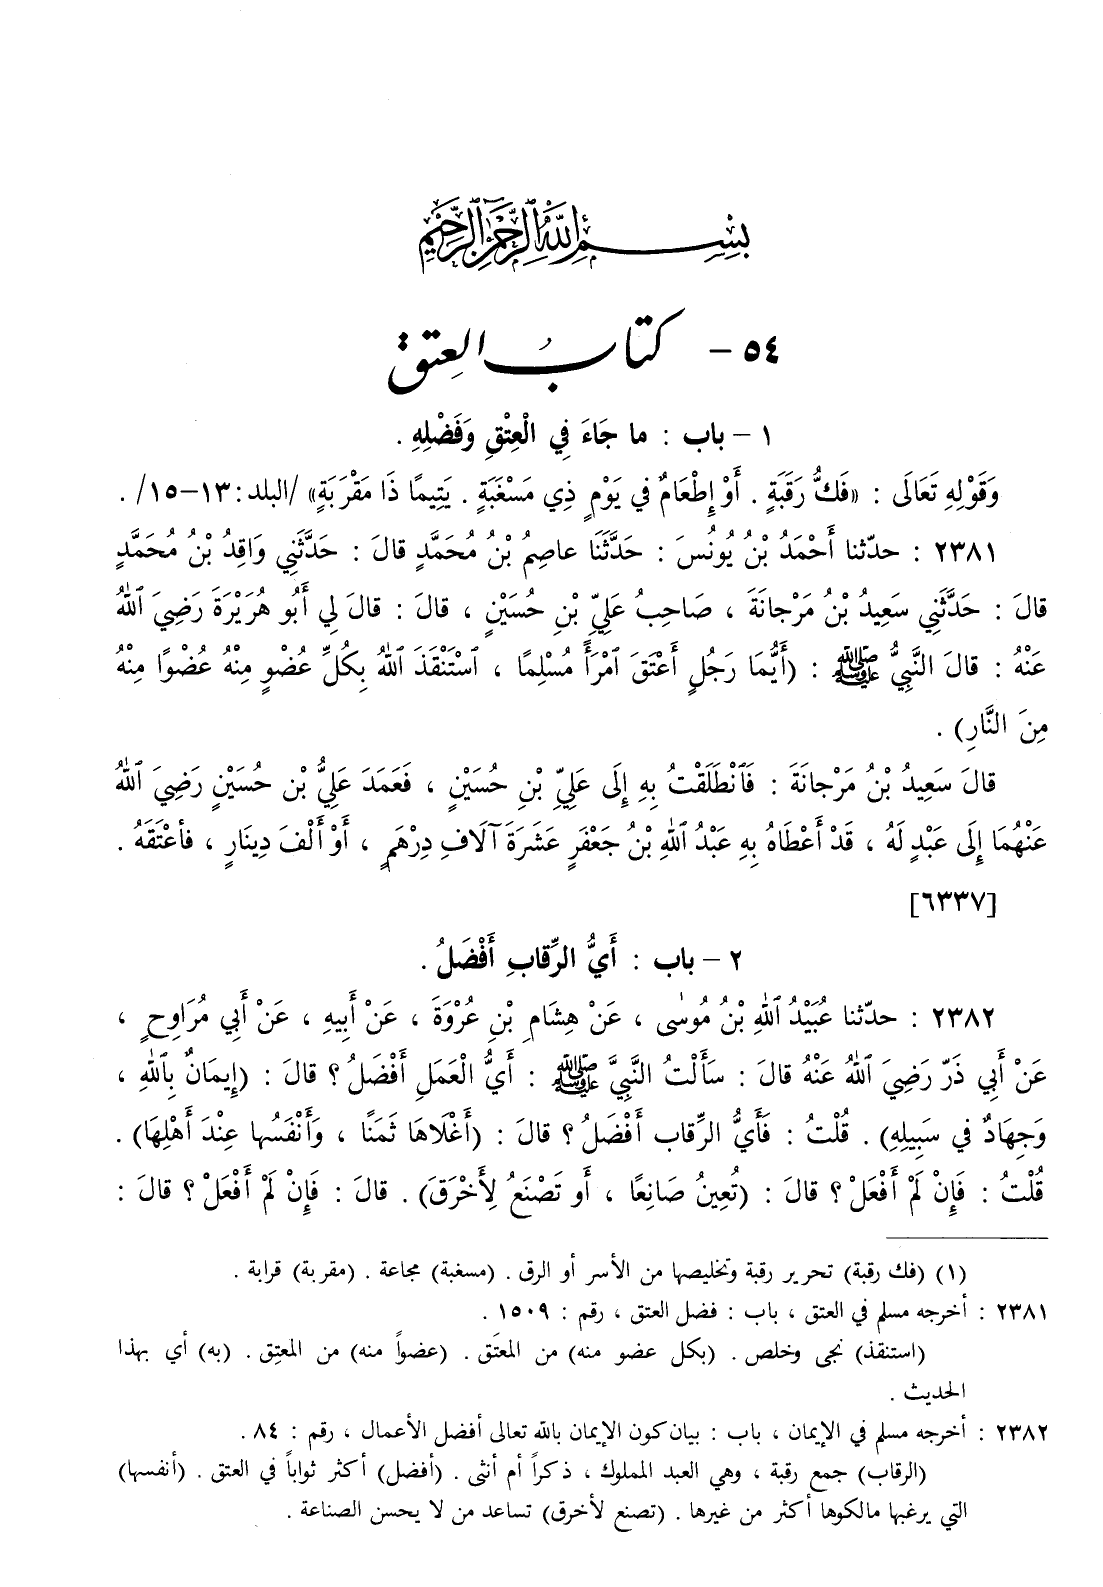 بِسْمِ ٱللَّهِ ٱلرَّحْمَٰنِ ٱلرَّحِيمِ
٥٤ – كتابُ العِتق
١ – باب : ما جَاءَ فِي الْعِتْقِ وَفَضْلِهِ .
وَقَوْلِهِ تَعَالَى : «فَكُّ رَقَبَةٍ . أَوْ إِطْعَامٌ في يَوْمٍ ذِي مَسْغَبَةٍ . يَتِيمًا ذَا مَقْرَبَةٍ» /البلد: ١٣–١٥/ .
٢٣٨١ : حدّثنا أَحْمَدُ بْنُ يُونُسَ : حَدَّثَنَا عاصِمُ بْنُ مُحَمَّدٍ قالَ : حَدَّثَنِي وَاقِدُ بْنُ مُحَمَّدٍ
قالَ : حَدَّثَنِي سَعِيدُ بْنُ مَرْجانَةَ ، صَاحِبُ عَلِيِّ بْنِ حُسَيْنٍ ، قالَ : قالَ لِي أَبُو هُرَيْرَةَ رَضِيَ ٱللهُ
عَنْهُ : قالَ النَّبِيُّ ﷺ : (أَيُّمَا رَجُلٍ أَعْتَقَ ٱمْرَأً مُسْلِمًا ، ٱسْتَنْقَذَ ٱللهُ بِكُلِّ عُضْوٍ مِنْهُ عُضْوًا مِنْهُ
مِنَ النَّارِ) .
قالَ سَعِيدُ بْنُ مَرْجانَةَ : فَٱنْطَلَقْتُ بِهِ إِلَى عَلِيِّ بْنِ حُسَيْنٍ ، فَعَمَدَ عَلِيُّ بْن حُسَيْنٍ رَضِيَ ٱللهُ
عَنْهُمَا إِلَى عَبْدٍ لَهُ ، قَدْ أَعْطَاهُ بِهِ عَبْدُ ٱللهِ بْنُ جَعْفَرٍ عَشَرَةَ آلَافِ دِرْهَمٍ ، أَوْ أَلْفَ دِينَارٍ ، فأعْتَقَهُ .
[٦٣٣٧]
٢ – باب : أَيُّ الرِّقابِ أَفْضَلُ .
٢٣٨٢ : حدّثنا عُبَيْدُ ٱللهِ بْنُ مُوسٰى ، عَنْ هِشَامِ بْنِ عُرْوَةَ ، عَنْ أَبِيهِ ، عَنْ أَبِي مُرَاوِحٍ ،
عَنْ أَبِي ذَرٍّ رَضِيَ ٱللهُ عَنْهُ قالَ : سَأَلْتُ النَّبِيَّ ﷺ : أَيُّ الْعَمَلِ أَفْضَلُ ؟ قالَ : (إِيمَانٌ بِٱللهِ ،
وَجِهَادٌ في سَبِيلِهِ) . قُلْتُ : فَأَيُّ الرِّقابِ أَفْضَلُ ؟ قالَ : (أَغْلَاهَا ثَمَنًا ، وَأَنْفَسُها عِنْدَ أَهْلِهَا) .
قُلْتُ : فَإِنْ لَمْ أَفْعَلْ ؟ قالَ : (تُعِينُ صَانِعًا ، أَو تَصْنَعُ لِأَخْرَقَ) . قالَ : فَإِنْ لَمْ أَفْعَلْ ؟ قالَ :
(١) (فك رقبة) تحرير رقبة وتخليصها من الأسر أو الرق . (مسغبة) مجاعة . (مقربة) قرابة .
٢٣٨١ : أخرجه مسلم في العتق ، باب : فضل العتق ، رقم : ١٥٠٩ .
(استنقذ) نجى وخلص . (بكل عضو منه) من المعتَق . (عضواً منه) من المعتِق . (به) أي بهذا
الحديث .
٢٣٨٢ : أخرجه مسلم في الإيمان ، باب : بيان كون الإيمان بالله تعالى أفضل الأعمال ، رقم : ٨٤ .
(الرقاب) جمع رقبة ، وهي العبد المملوك ، ذكراً أم أنثى . (أفضل) أكثر ثواباً في العتق . (أنفسها)
التي يرغبها مالكوها أكثر من غيرها . (تصنع لأخرق) تساعد من لا يحسن الصناعة .